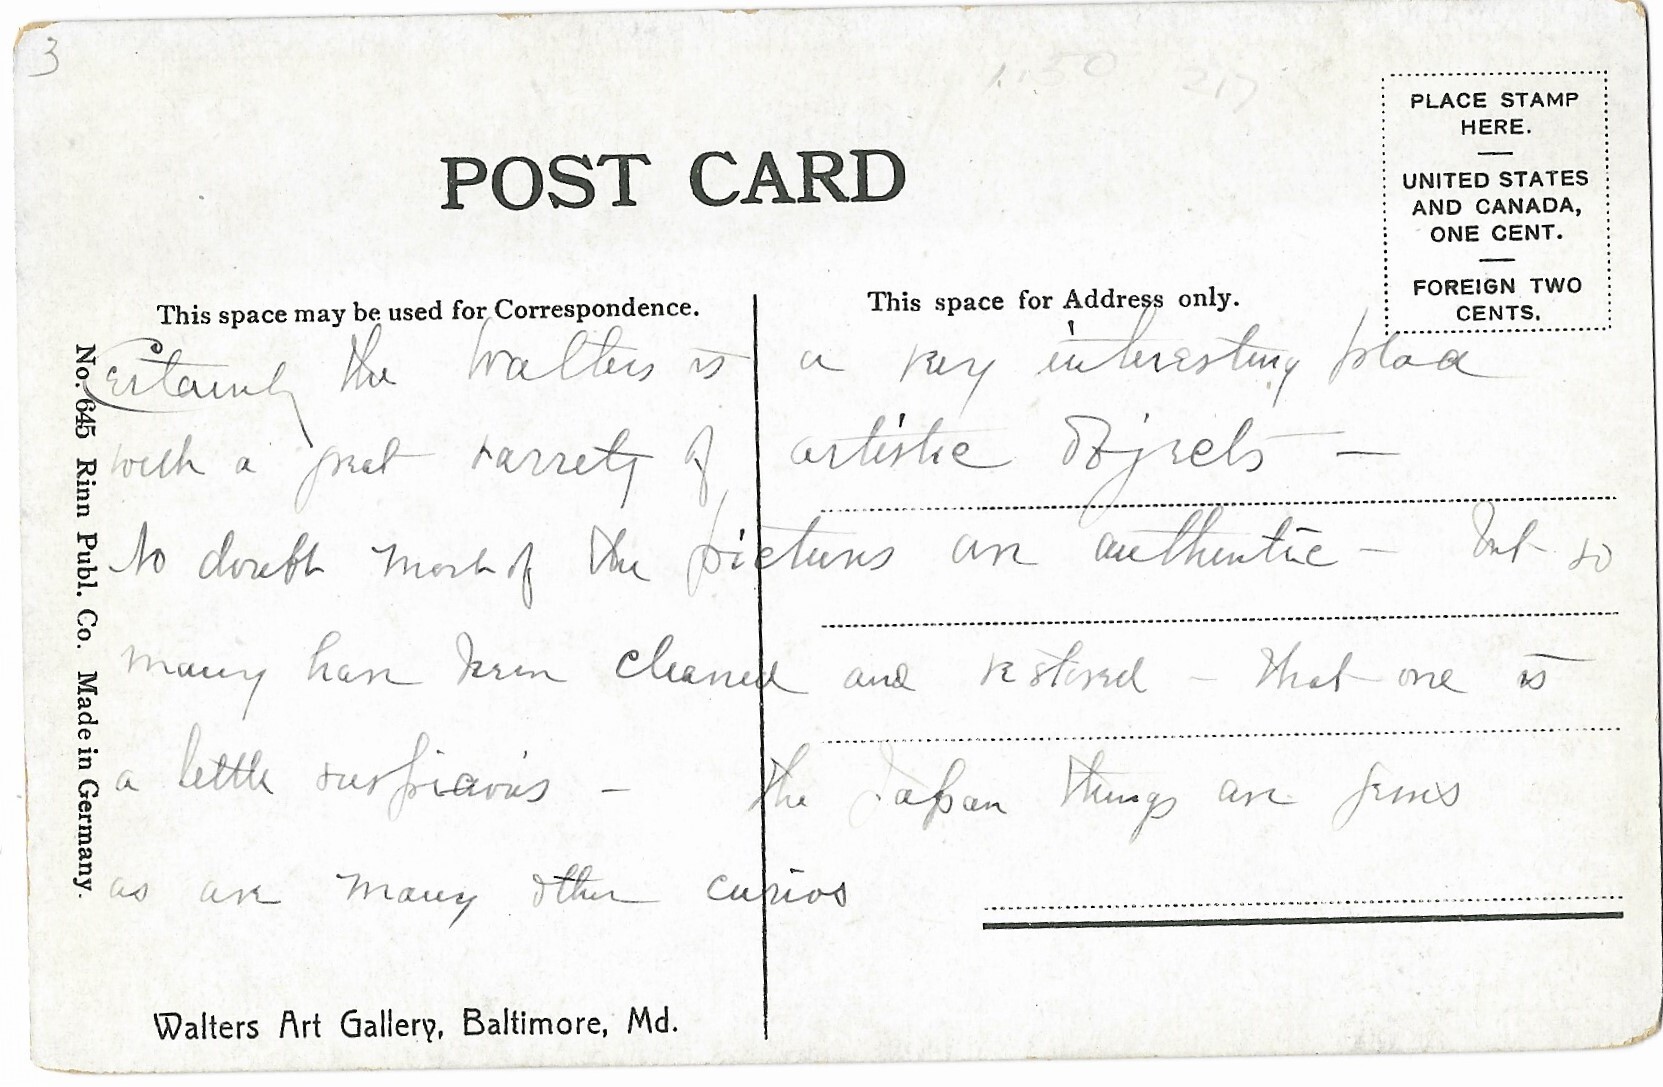 3
1.50 217
PLACE STAMP
HERE.
UNITED STATES
AND CANADA,
ONE CENT.
FOREIGN TWO
CENTS.
POST CARD
This space may be used for Correspondence.
This space for Address only.
Certainly the Walters is a very interesting place
with a great variety of artistic objects —
No doubt most of the pictures are authentic — but so
many have been cleaned and restored — that one is
a little suspicious — The Japan things are gems
as are many other curios
No. 645 Rinn Publ. Co. Made in Germany.
Walters Art Gallery, Baltimore, Md.